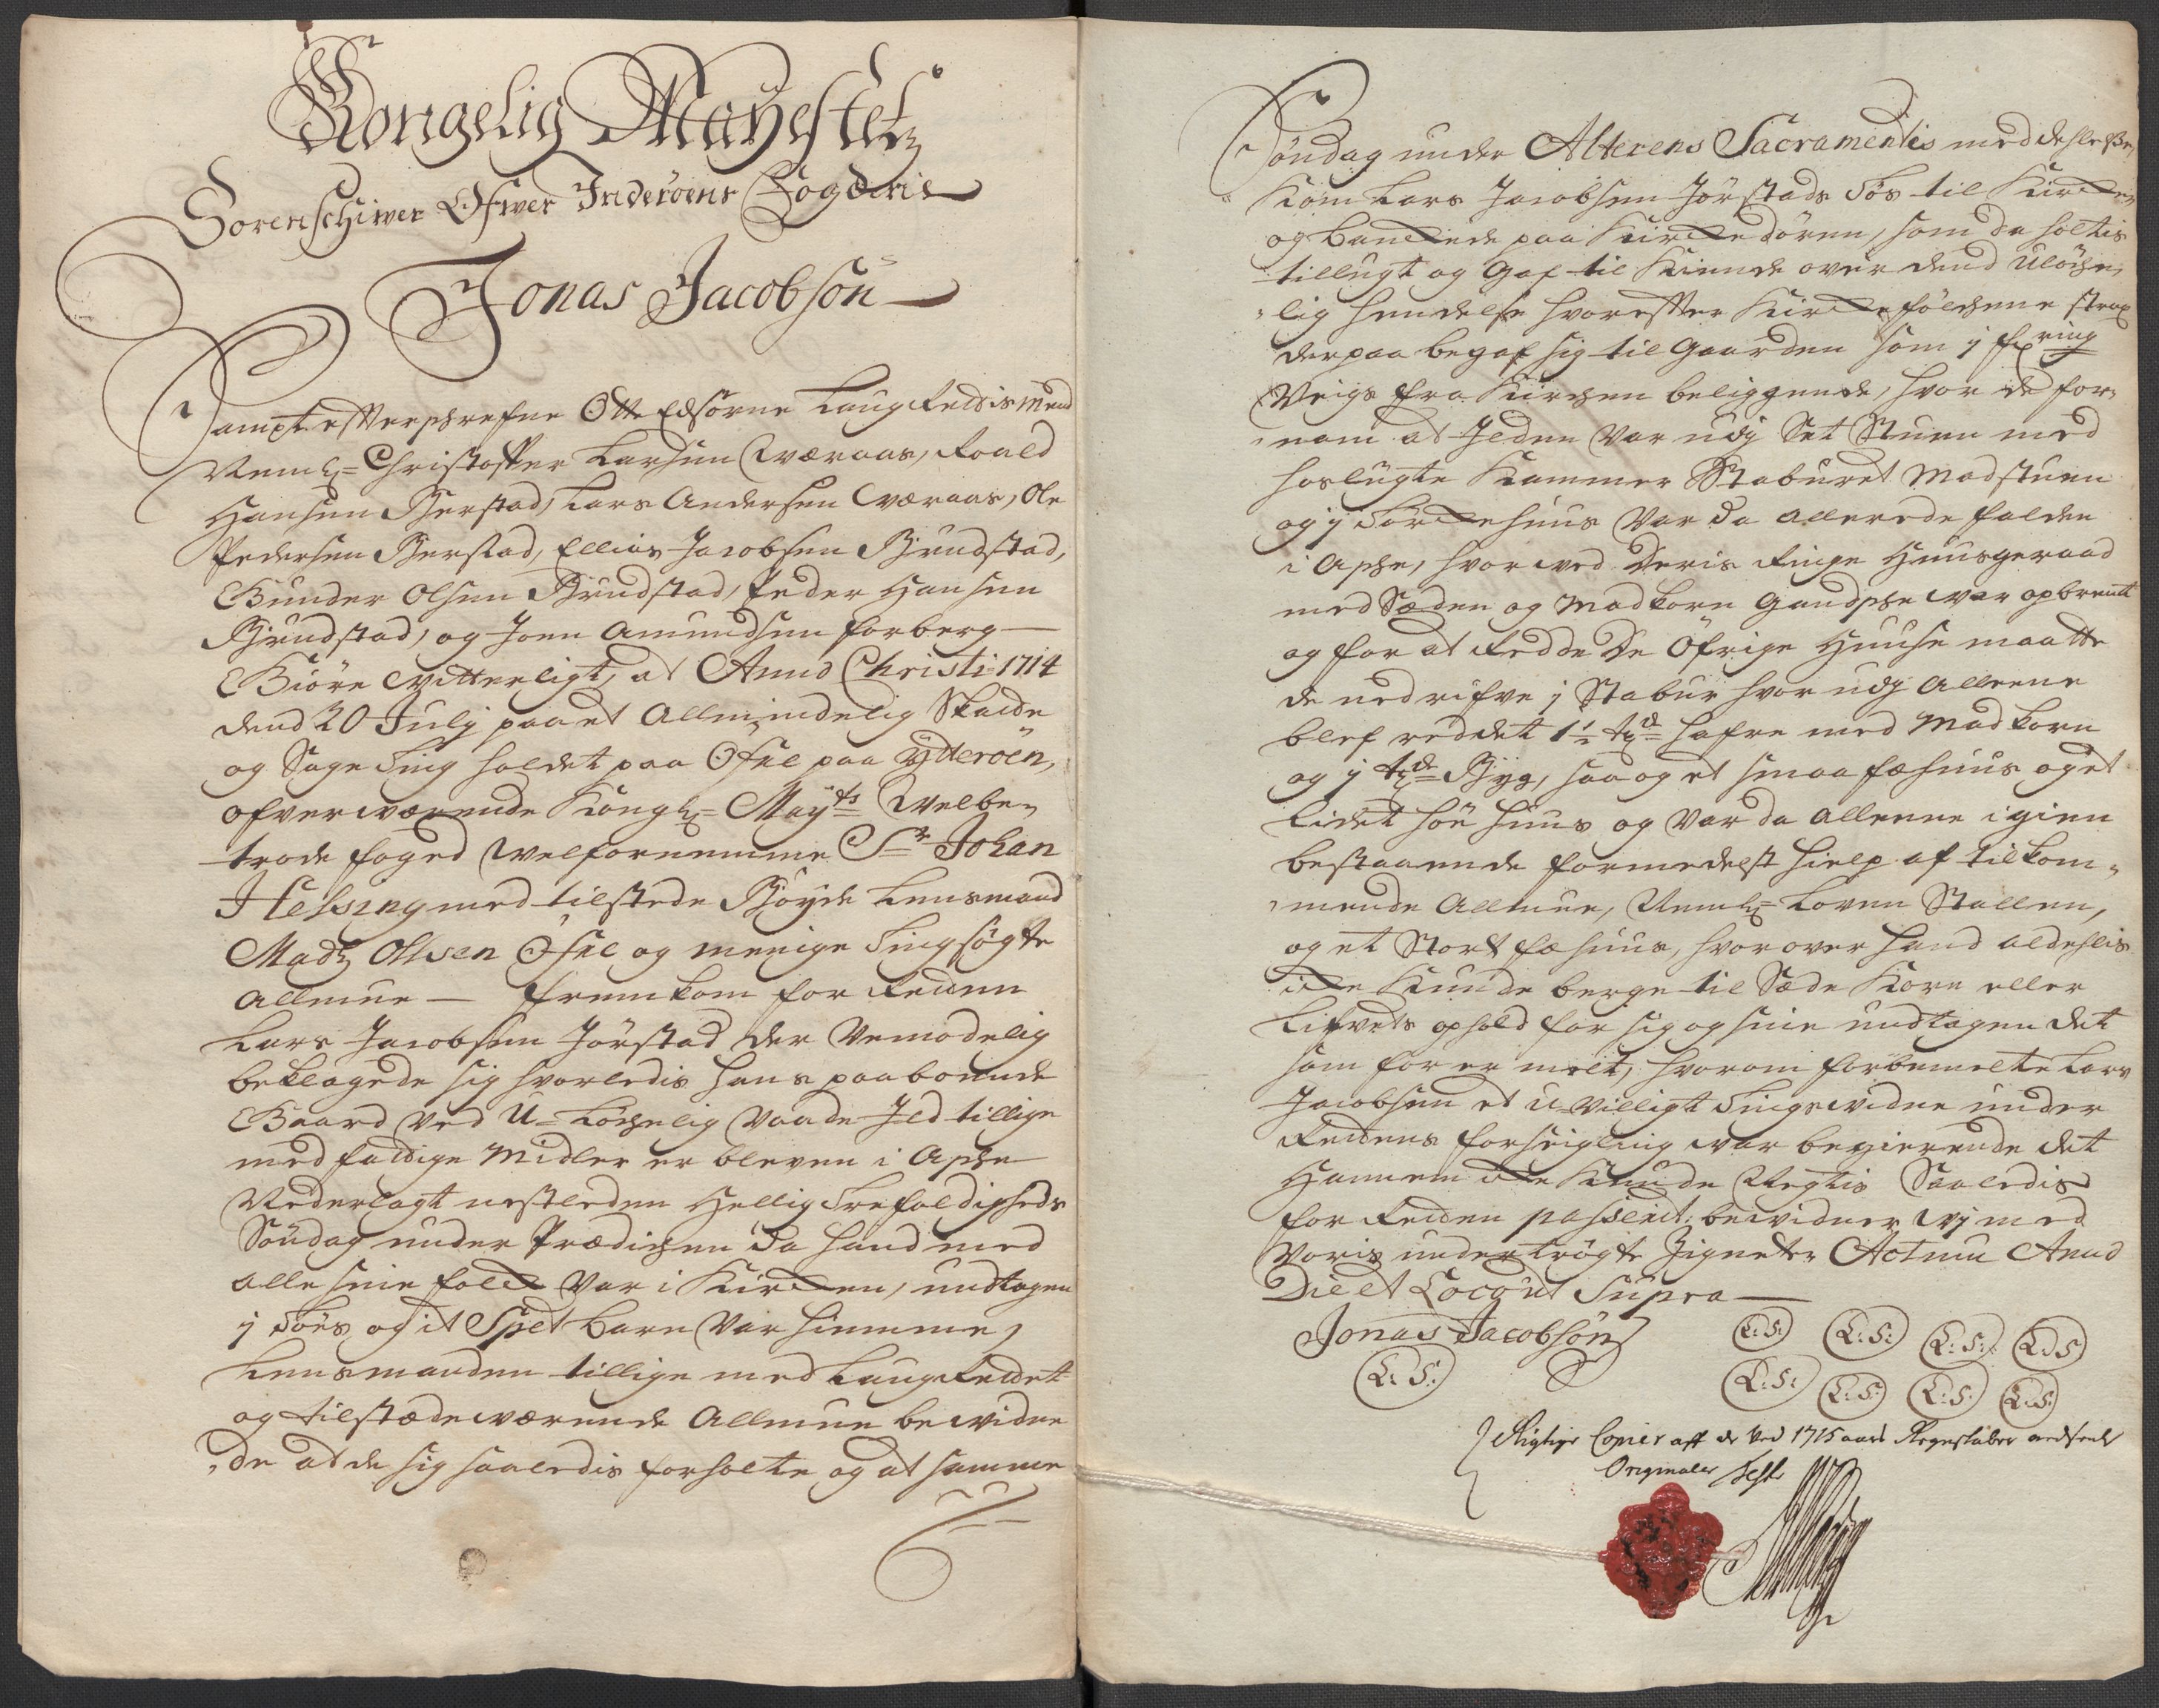 Kongelig Mayestetz
Sorenschiwer Ofwer Inderöens Fogderie
Jonas Jacobsön
Sampt efterschrefne Otte Edsorne Laugrettismend
Neml: Christoffer Larsen Qværaas, Roald
Hansen Berstad, Lars Andersen Qværaas, Ole
Pedersen Berstad, Ellias Jacobsen Brudstad,
Gunder Olsen Brudstad, Peder Hansen
Brudstad, og Joen Amundsen Forberg
Giöre Vitterligt, at Anno Christi 1714
dend 20 July paa et Allmindelig Skatte
og Sage Ting holdet paa Øfre paa Ytteröen,
ofverværende Kongl: May:ts Velbe-
trode foged Welfornemme Sr. Johan
Helsing med tilstede Böyde Lensmand
Madz Olsen Øfre og menige Tingsøgte
Allmue — fremkom for Retten
Lars Jacobsen Jörstad der Vemodelig
beklagede sig hvorledis hans paaboende
Gaard Ved U-Löchelig Vaade Jld tillige
med fattige Midler er bleven i Asche
Nederlagt nestleden Hellig Trefoldigheds
Söndag under Prædichen da hand med
alle sine folck Var i Kircken, undtagen
1 Tös og it Spet Barn Var hiemme,
Lensmanden tillige med Laugrettet
og tilstædeværende Allmue bevidne
de at de sig saaledis forholte og at samme
Söndag under Alterens Sacramentis meddehlelse,
Kom Lars Jacobsen Jörstads Tös til Kircken,
og banckede paa Kirckedören, som da holtis
tillugt og Gaf til Kiende over dend Ulöche-
lig hendelse hvorefter Kirckefolckene strax
derpaa begaf sig til Gaarden som 1 fiering
Veigs fra Kirchen beliggende, hvor de for-
nam at Jlden Var udj Set Stuen med
hoslugte Kammer Staburet Madstuen
og 1 Törckehuus Var da allerede falden
i Asche, hvorved Deris Ringe Huusgeraad
med Sæden og Madkorn Gandsche var opbrendt
og for at Redde De Öfrige Huuse maatte
de nedrifve 1 Stabur hvor udj Alleene
blef reddet 1½ td: hafre med Madkorn
og 1 tde: Byg, saa og et smaa fæhuus og et
lidet höe huus og Var da alleene igien
bestaaende formedelst hielp af tilkom-
mende Allmue, Neml: Loven Stallen,
og et Stort fæhuus, hvorover hand aldehlis
icke Kunde berge til Sæde Korn eller
Lifvets ophold for sig og sine undtagen det
som for er melt, hvorom forbemelte Lars
Jacobsen et U-Villigt Tingsvidne under
Rettens forseigling var begierende det
Hannem icke Kunde Negtis Saaledis
for Retten passeret bevidner Vj med
Voris undertrögte Zigneter Actum Anno
Die et Locout Supra
Jonas Jacobsön L: S: L: S: L: S: L: S
L: S: L: S: L: S: L: S: L: S:
Rigtige Copier aff de Ved 1715 aars Regenskaber nedsendte
Originaler Test: